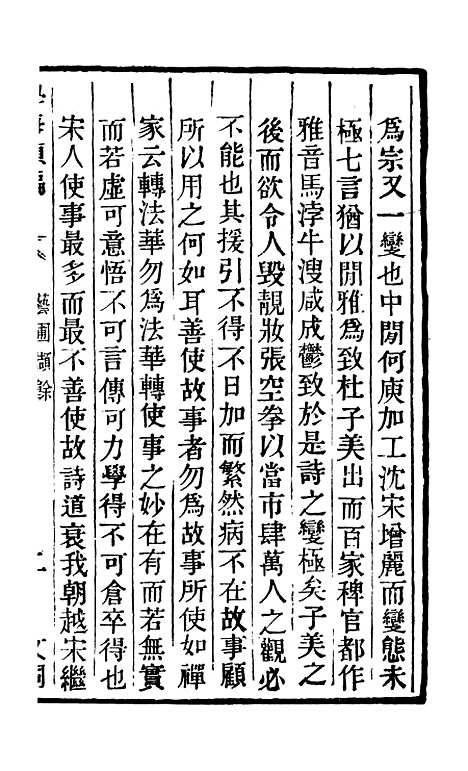 爲宗又一變也中閒何庾加工沈宋增麗而變態未
極七言猶以閒雅爲致杜子美出而百家稗官都作
雅音馬浡牛溲咸成鬱致於是詩之變極矣子美之
後而欲令人毀靚妝張空拳以當市肆萬人之觀必
不能也其援引不得不日加而繁然病不在故事顧
所以用之何如耳善使故事者勿爲故事所使如禪
家云轉法華勿爲法華轉使事之妙在有而若無實
而若虛可意悟不可言傳可力學得不可倉卒得也
宋人使事最多而最不善使故詩道衰我朝越宋繼
藝圃擷餘